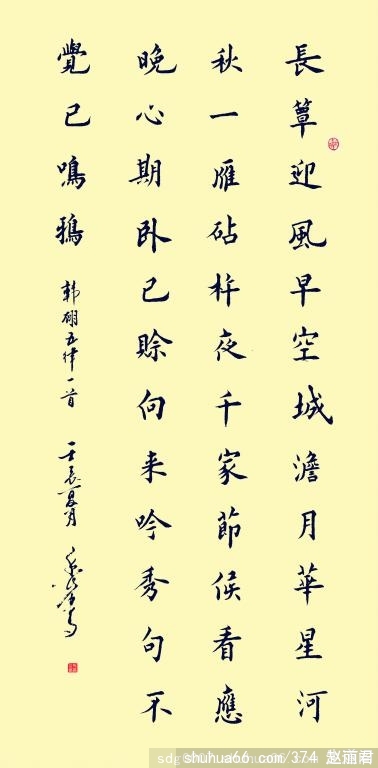 長簟迎風早空城澹月華星河
秋一雁砧杵夜千家節候看應
晚心期卧已賒向来吟秀句不
覺已鳴鴉
韓翃五律一首 壬辰夏月
shuhua66 com/374 赵丽君